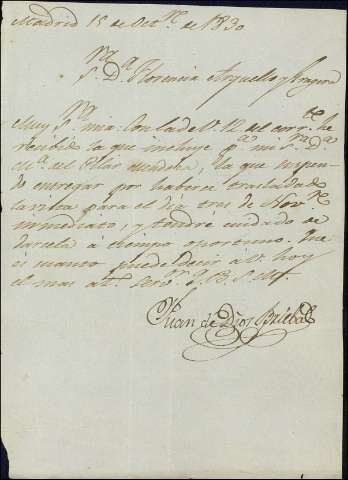 Madrid 15 de Oct.re de 1830
S.ra D.a Florencia Arguello y
Muy S.ra mia: Con la de V. 12 del corr.te he
recibido la que incluye p.a mi S.ra D.a
del Pilar Mendoza, la que suspendo
entregar por haberse trasladado
la vista para el dia tres de Nov.re
inmediato, y tendré cuidado de
darsela á tiempo oportuno. Que
es cuanto puede decir a V. hoy
el mas at.to Serv.or q. B. S. M.
Juan de Dios Brieba